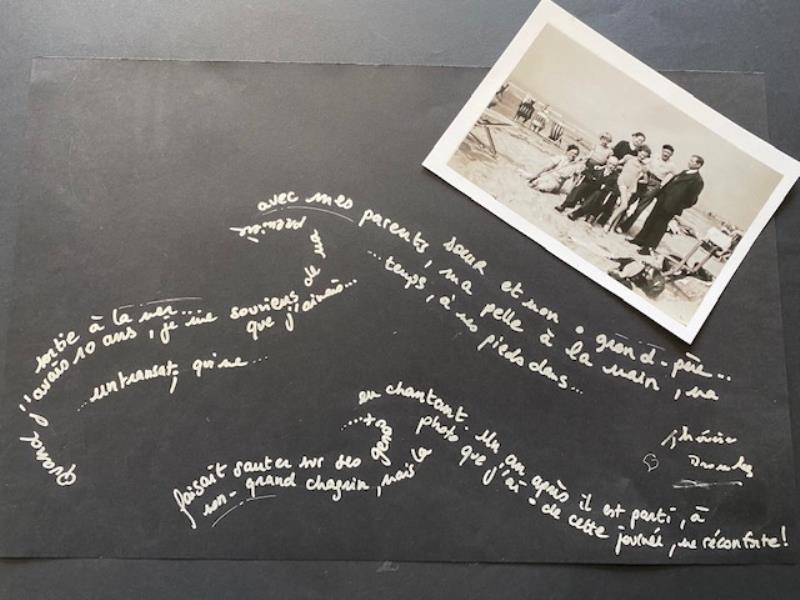 Quand j'avais 10 ans, je me souviens de ma
première
sortie à la mer...
avec mes parents, ma pelle à la main, ma
sœur et mon grand-père...
que j'aimais...
...temps, à nos pieds dans...
...un transat, qui me...
faisait sauter sur ses genoux
en chantant. Un an après il est parti, à
mon grand chagrin, mais la photo que j'ai de cette journée, me réconforte!
Thérèse